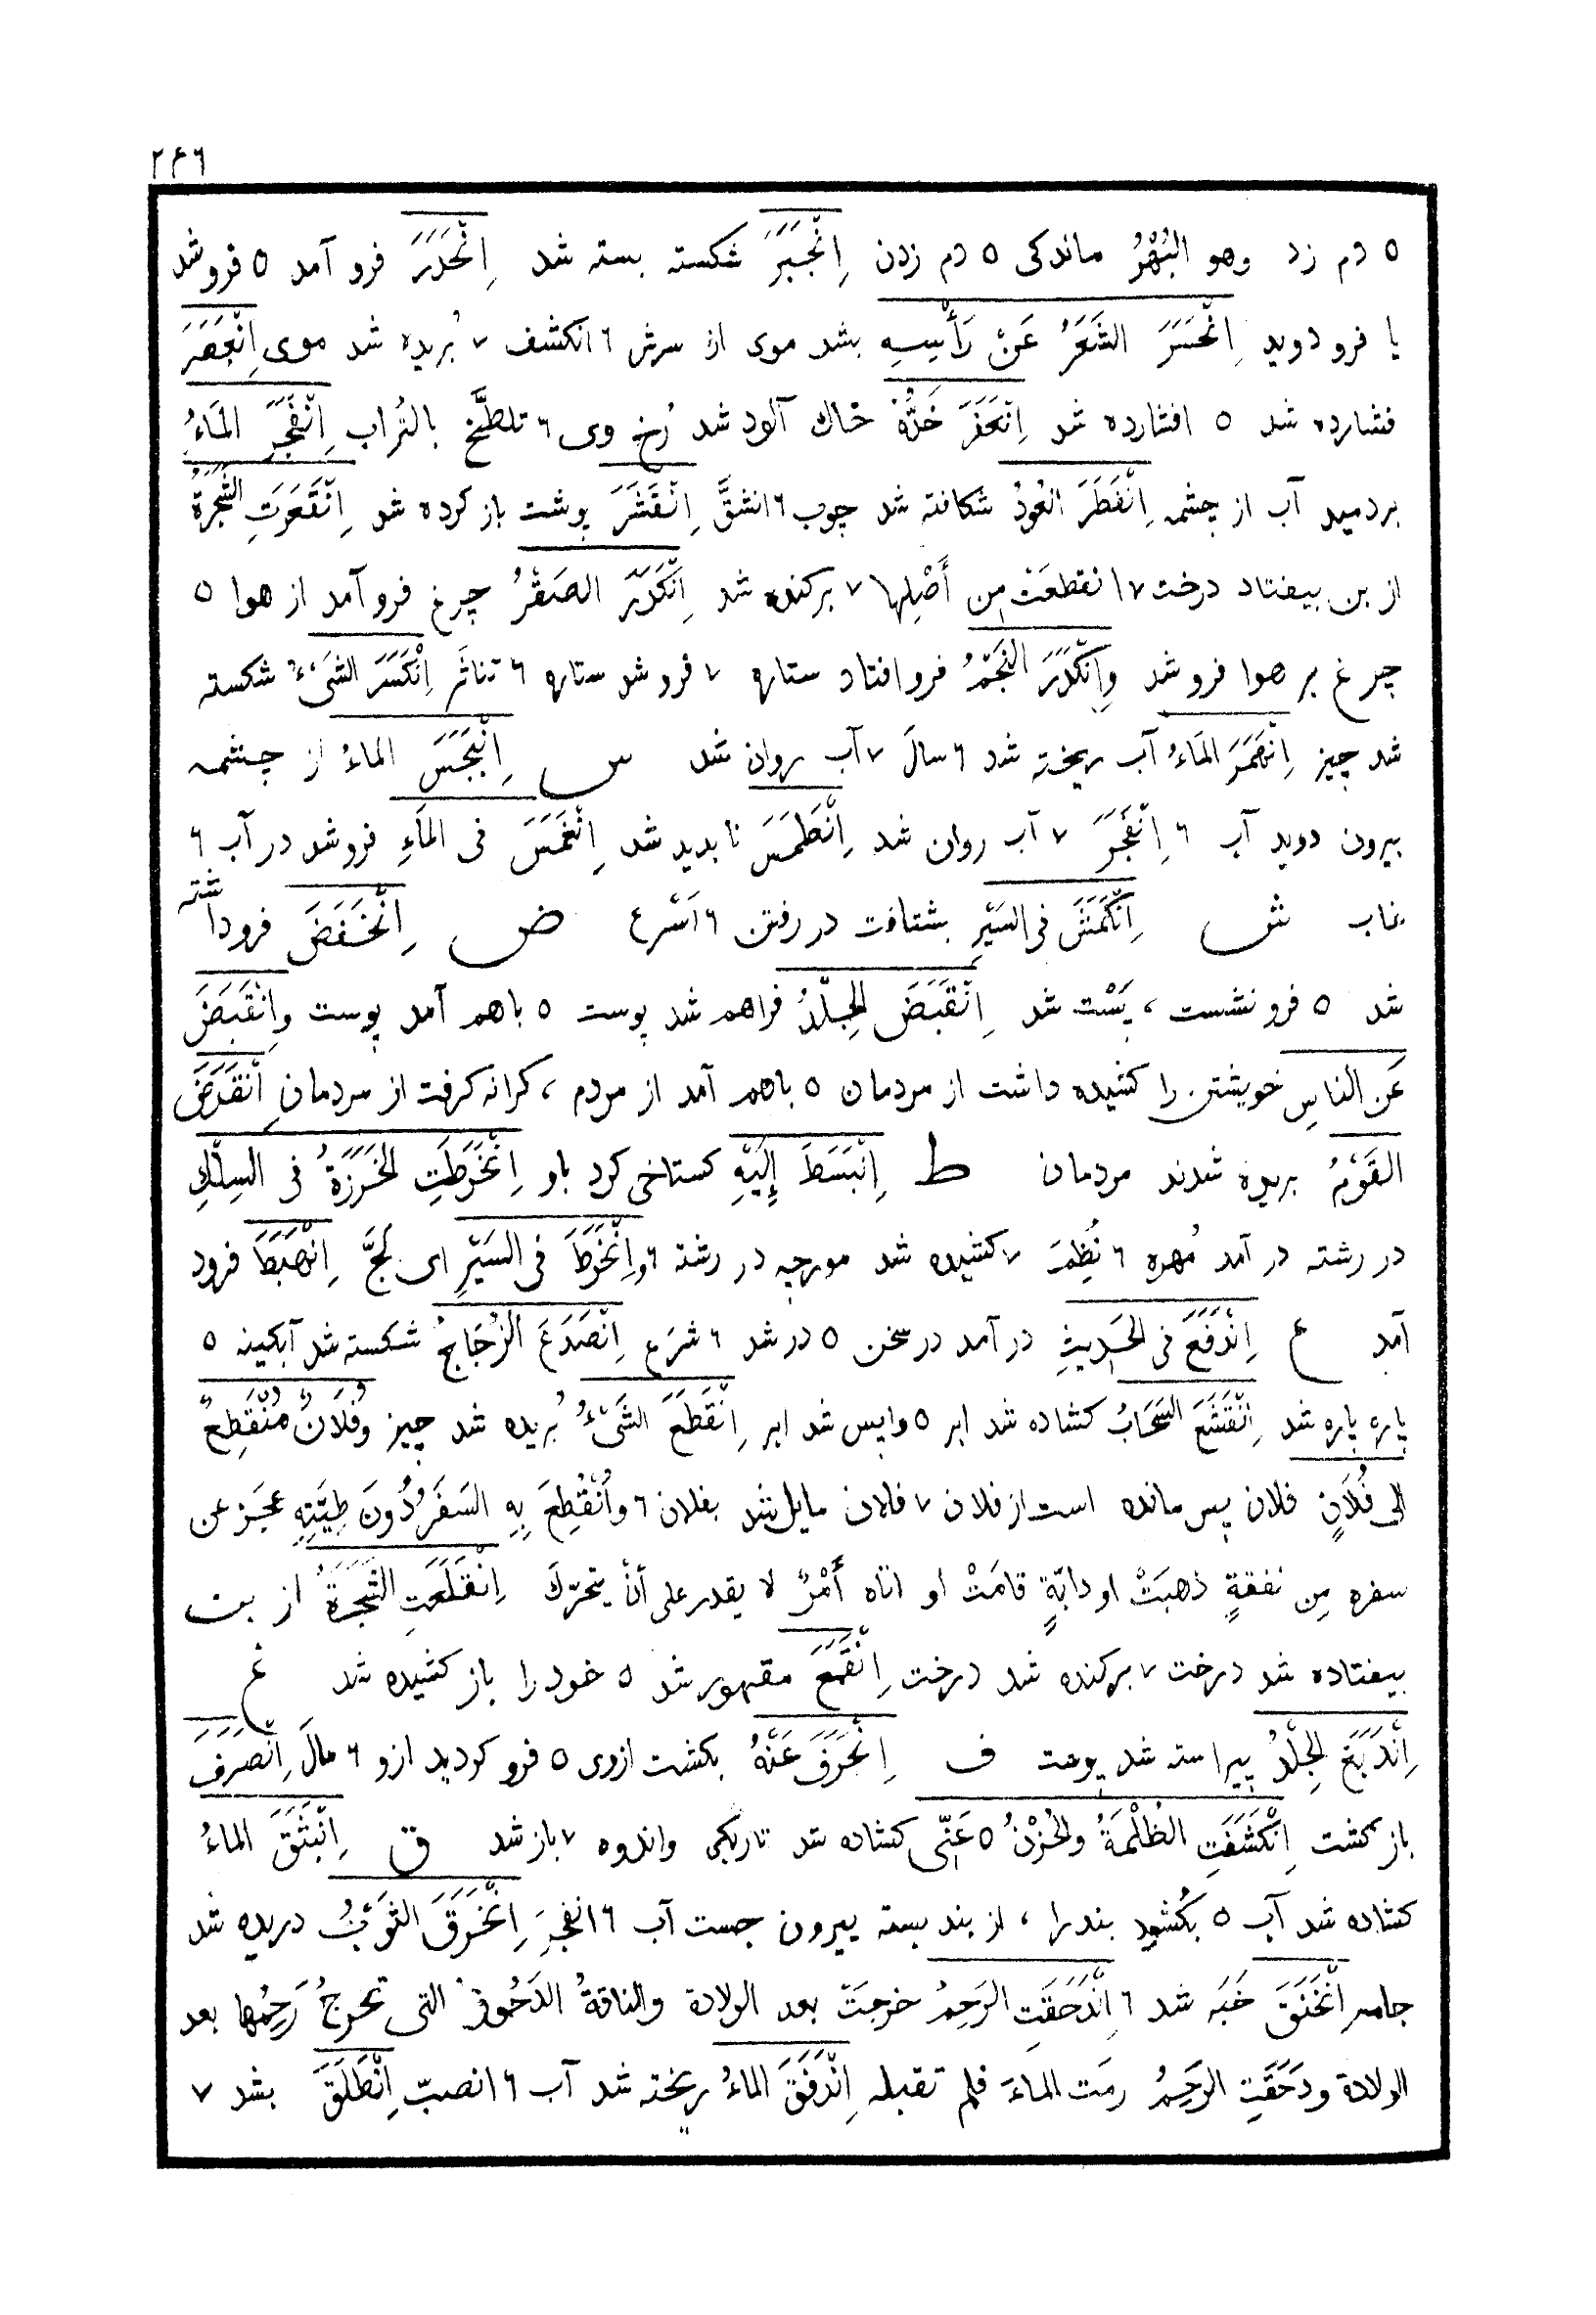 ۲۴۶
۵ دم زد وهو البُهْرُ ماندکی ۵ دم زدن اِنْجَبَرَ شکسته بسته شد اِنْحَدَرَ فرو آمد ۵ فرو شد
یا فرو دوید اِنْحَسَرَ الشَعَرُ عَنْ رَأْسِهِ بشد موی از سرش ۶ انکشف ۷ بُریده شد موی اِنْعَصَرَ
فشارده شد ۵ افشارده شد اِنْعَفَرَ خَدُّهُ خاك آلود شد رُخ وی ۶ تلطَّخ بالتُراب اِنْفَجَرَ المَاءُ
بردمید آب از چشمه اِنْفَطَرَ العُودُ شکافته شد چوب ۶ انشقَّ اِنْقَشَرَ پوشت باز کرده شد اِنْقَعَرَتِ الشَجَرَةُ
از بن بیفتاد درخت ۷ انقطعَتْ مِن أَصْلِها ۷ برکنده شد اِنْكَدَرَ الصَقْرُ چرغ فرو آمد از هوا ۵
چرغ بر هوا فرو شد وانْكَدَرَ النَجْمُ فرو افتاد ستاره ۷ فرو شد ستاره ۶ تناثَر اِنْكَسَرَ الشَیْءُ شکسته
شد چیز اِنْهَمَرَ المَاءُ آب ریخته شد ۶ سالَ ۷ آب روان شد س اِنْبَجَسَ الماءُ از چشمه
بیرون دوید آب ۶ اِنْفَجَرَ ۷ آب روان شد اِنْطَمَسَ نابدید شد اِنْغَمَسَ فی المَاءِ فرو شد در آب ۶
غاب ش اِنْكَمَشَ فی السَیْرِ بشتافت در رفتن ۶ اَسْرع ض اِنْخَفَضَ فرو داشته
شد ۵ فرو نشست ، پَسْت شد اِنْقَبَضَ الجِلْدُ فراهم شد پوست ۵ باهم آمد پوست وانْقَبَضَ
عَن الناسِ خویشتن را کشیده داشت از مردمان ۵ باهم آمد از مردم ، کرانه کرفت از مردمان اِنْقَرَضَ
القَوْمُ بریده شدند مردمان ط اِنْبَسَطَ إِلَیْهِ کستاخی کرد باو اِنْخَرَطَتِ الخَرَزَةُ فی السِلْكِ
در رشته در آمد مُهره ۶ نُظِمَتْ ۷ کشیده شد مورچه در رشته ۶ وانْخَرَطَ فی السَیْرِ ای لَجَّ اِنْهَبَطَ فرود
آمد ع اِنْدَفَعَ فی الحَدِیثِ در آمد در سخن ۵ در شد ۶ شرَع اِنْصَدَعَ الزُجَاجُ شکسته شد آبکینه ۵
پاره پاره شد اِنْقَشَعَ السَحَابُ کشاده شد ابر ۵ واپس شد ابر اِنْقَطَعَ الشَیْءُ بُریده شد چیز وفُلَانٌ مُنْقَطِعٌ
الی فُلَانٍ فلان پس مانده است از فلان ۷ فلان مایل شد بفلان ۶ وأُنْقُطِعَ بِهِ السَفَرُ دُونَ طِیَّتِهِ عجَز عن
سفره مِن نفقةٍ ذهبَتْ او دابّةٍ قامَتْ او اتاه أَمْرٌ لا یقدر علی أنْ یتحرّكَ اِنْقَلَعَتِ الشَجَرَةُ از بن
بیفتاده شد درخت ۷ برکنده شد درخت اِنْقَمَعَ مقهور شد ۵ خود را باز کشیده شد غ
اِنْدَبَغَ الجِلْدُ پیراسته شد پوست ف اِنْحَرَفَ عَنْهُ بکشت ازوی ۵ فرو کردید ازو ۶ مالَ اِنْصَرَفَ
باز کشت اِنْكَشَفَتِ الظُلْمَةُ والحُزْنُ ۵ عَنّی کشاده شد تاریکی واندوه ۷ باز شد ق اِنْبَثَقَ الماءُ
کشاده شد آب ۵ بکُشود بند را ، از بند بسته بیرون جست آب ۶ انفجَرَ اِنْخَرَقَ الثَوْبُ دریده شد
جامه اِنْخَنَقَ خَبَه شد ۶ اِنْدَحَقَتِ الرَحِمُ خرجتْ بعد الولادة والناقةُ الدَحُوقُ التی تخرجُ رَحِمُها بعد
الولادة ودَحَقَتِ الرَحِمُ رمَت الماءَ فلم تقبله اِنْدَفَقَ الماءُ ریخته شد آب ۶ انصبّ اِنْطَلَقَ بشد ۷